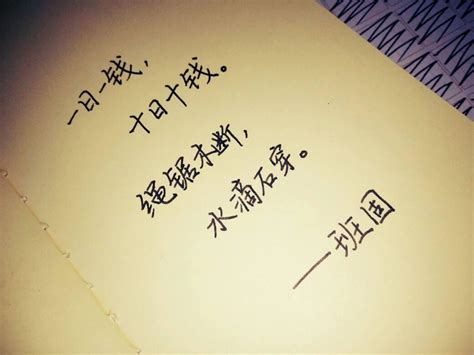 一日一钱，
十日十钱。
绳锯木断，
水滴石穿。
——班固